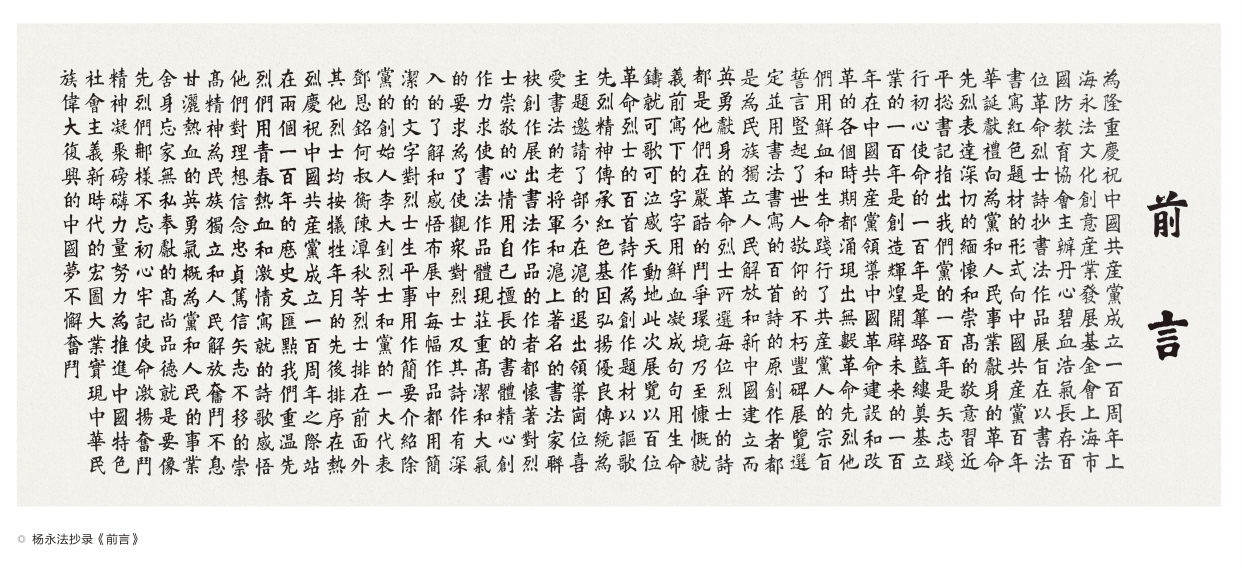 前言
為隆重慶祝中國共産黨成立一百周年上
海永法文化創意産業發展基金會上海市
國防教育協會主辦丹心碧血浩氣長存百
位革命烈士詩抄書法作品展旨在以書法
書寫紅色題材的形式向中國共産黨百年
華誕獻禮向為黨和人民事業獻身的革命
先烈表達深切的緬懷和崇高的敬意習近
平総書記指出我們黨的一百年是矢志踐
行初心使命的一百年是篳路藍縷奠基立
業的一百年是創造輝煌開辟未来的一百
年在中國共産黨領導中國革命建設和改
革的各個時期都涌現出無數革命先烈他
們用鮮血和生命踐行了共産黨人的宗旨
誓言竪起了世人敬仰的不朽豐碑展覽選
定並用書法書寫的百首詩的原創作者都
是為民族獨立人民解放和新中國建立而
英勇獻身的革命烈士所選每位烈士的詩
都是他們在嚴酷的鬥爭環境乃至慷慨就
義前寫下的字字用鮮血凝成句句用生命
鑄就可歌可泣感天動地此次展覽以百位
革命烈士的百首詩作為創作題材以謳歌
先烈精神傳承紅色基因弘揚優良傳統為
主題邀請了部分在滬的退出領導崗位喜
愛書法的老將軍和滬上著名的書法家聯
袂創作展出書法作品的作者都懷著對烈
士崇敬的心情用自己擅長的書體精心創
作力求使書法作品體現莊重高潔和大氣
的要求為了使觀衆對烈士及其詩作有深
入的了解和感悟布展中每幅作品都用簡
潔的文字對烈士生平事用作簡要介紹除
黨的創始人李大釗烈士和黨的一大代表
鄧恩銘何叔衡陳潭秋等烈士排在前面外
其他烈士均按犧牲年月的先後排序在熱
烈慶祝中國共産黨成立一百周年之際站
在兩個一百年的歷史交匯點我們重温先
烈們用青春熱血和激情寫就的詩歌感悟
他們對理想信念忠貞篤信矢志不移的崇
高精神為民族獨立和人民解放奮鬥不息
甘灑熱血的英勇氣概為黨和人民的事業
舍身忘家無私奉獻的高尚品德就是要像
先烈們那樣不忘初心牢記使命激揚奮鬥
精神凝聚磅礴力量努力為推進中國特色
社會主義新時代的宏圖大業實現中華民
族偉大復興的中國夢不懈奮鬥
杨永法抄录《前言》